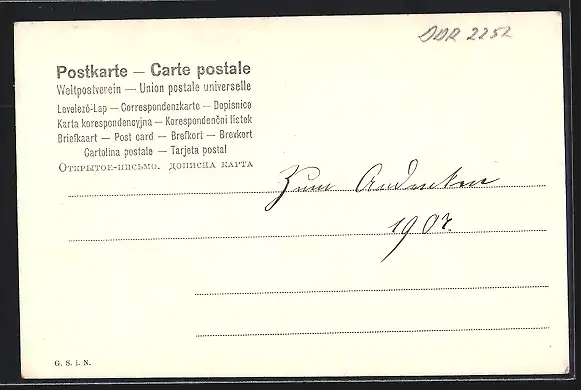 DDR 2252
Postkarte — Carte postale
Weltpostverein — Union postale universelle
Levelező-Lap — Correspondenzkarte — Dopisnice
Karta korespondencyjna — Korespondenční listek
Briefkaart — Post card — Brefkort — Brevkort
Cartolina postale — Tarjeta postal
Открытое-письмо. дописна карта
Zum Andenken
1907.
G. S. i. N.